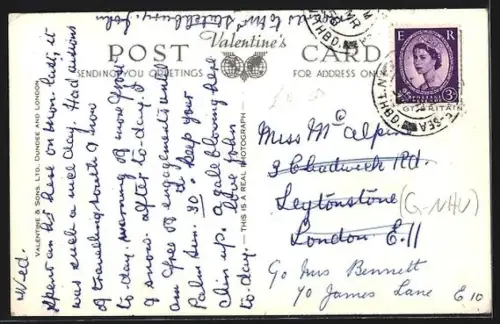 POST Valentine's CARD
SENDING YOU GREETINGS
FOR ADDRESS ONLY
VALENTINE & SONS. LTD., DUNDEE AND LONDON
THIS IS A REAL PHOTOGRAPH
Wed.
Spent an hr here on mon. last, it
was such a nice day. Had visions
of travelling south & now
to-day. warning of more frost
& snow. after to-day I
am free of engagements until
Palm Sun. 30th keep your
chin up. a gale blowing here
to-day. love John
E R
3D
Miss McAlpin
9 Chadwick Rd.
Leytonstone
London E.11
(G-NHU)
c/o Mrs Bennett
70 James Lane E 10